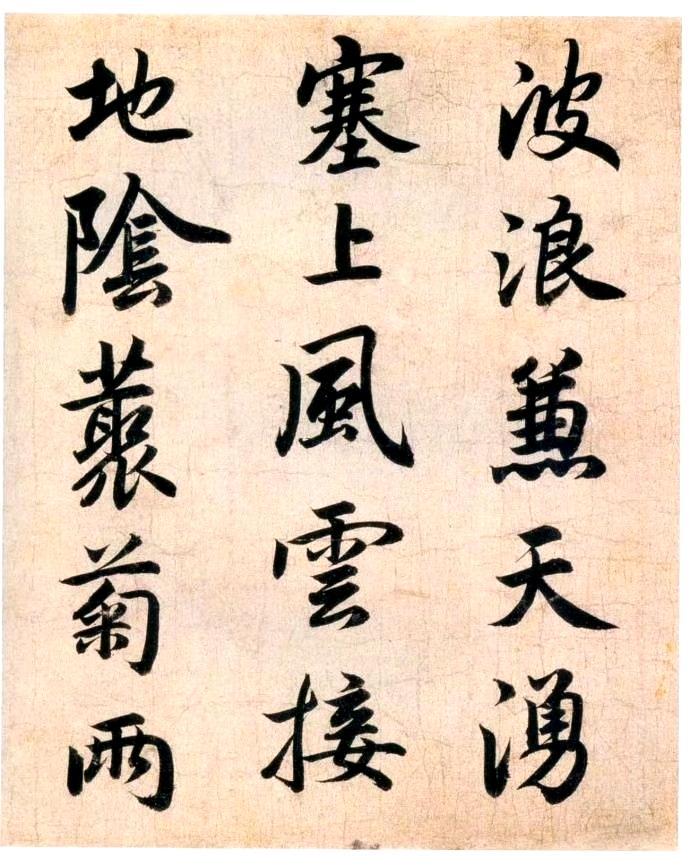 波浪蒹天湧
塞上風雲接
地隂藂菊兩